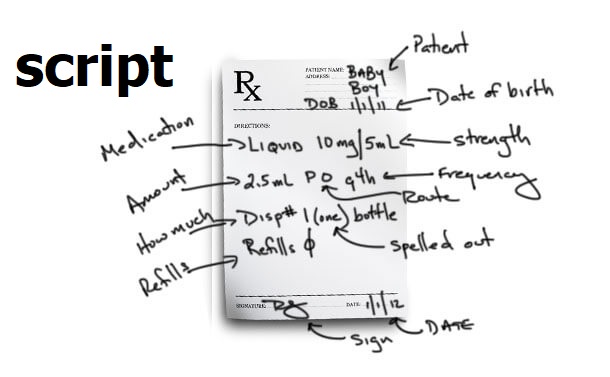 script
Patient
PATIENT NAME: BABY
ADDRESS: BOY
DOB 1/1/11
Date of birth
Rx
DIRECTIONS:
Medication
LIQUID 10mg/5mL
strength
Amount
2.5mL PO q4h
Frequency
Route
How much
Disp# 1 (one) bottle
Spelled out
Refills
Refills Ø
SIGNATURE:
DATE: 1/1/12
Sign
DATE